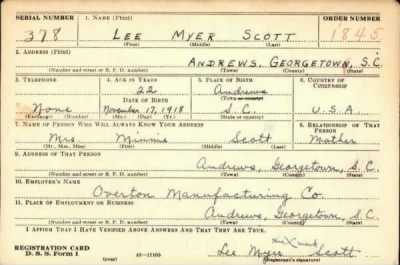 SERIAL NUMBER 1. NAME (Print) ORDER NUMBER
378 LEE MYER SCOTT 1845
(First) (Middle) (Last)
2. ADDRESS (Print)
ANDREWS, GEORGETOWN, S.C.
(Number and street or R. F. D. number) (Town) (County) (State)
3. TELEPHONE 4. AGE IN YEARS 5. PLACE OF BIRTH 6. COUNTRY OF CITIZENSHIP
22 Andrews
DATE OF BIRTH (Town or county)
None November 17, 1918 S.C. U.S.A.
(Exchange) (Number) (Mo.) (Day) (Yr.) (State or country)
7. NAME OF PERSON WHO WILL ALWAYS KNOW YOUR ADDRESS 8. RELATIONSHIP OF THAT PERSON
Mrs. Minnie Scott Mother
(Mr., Mrs., Miss) (First) (Middle) (Last)
9. ADDRESS OF THAT PERSON
Andrews, Georgetown, S.C.
(Number and street or R. F. D. number) (Town) (County) (State)
10. EMPLOYER'S NAME
Overton Manufacturing Co.
11. PLACE OF EMPLOYMENT OR BUSINESS
Andrews, Georgetown, S.C.
(Number and street or R. F. D. number) (Town) (County) (State)
I AFFIRM THAT I HAVE VERIFIED ABOVE ANSWERS AND THAT THEY ARE TRUE.
his X mark
REGISTRATION CARD Lee Myer Scott
D. S. S. Form 1 (over) 16—17105 (Registrant's signature)